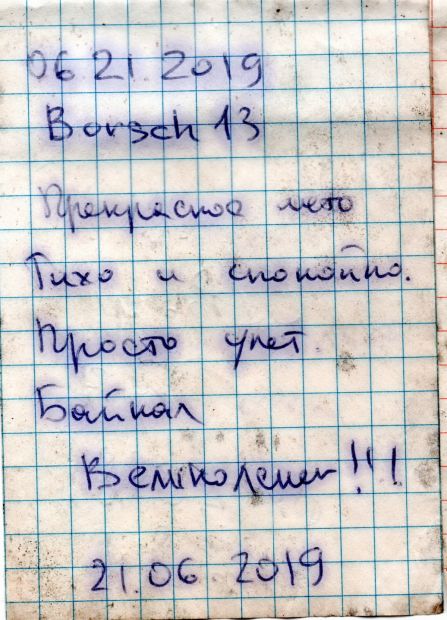 06 21 2019
Borsch 13
Прекрасное место
Тихо и спокойно.
Просто улет.
Байкал
Великолепен!!!
21.06.2019